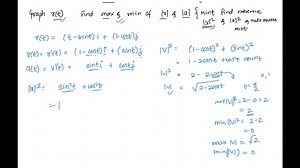 Graph r(t) Find max & min of |v| & |a| { Hint: find
|v|² & |a|²
r(t) = (t - sint)i + (1-cost)j
v(t) = r'(t) = (1-cost)i + (sint)j
a(t) = v'(t) = sint i + cost j
|a|² = sin²t + cos²t
= 1
|v|² = (1-cost)² + (sint)²
= 1-2cost+cos²t+sin²t
|v|² = 2 - 2cost
|v| = √2-2cost
max|v|² = 2-0=2
= 2
min|v|² = 2-2
= 0
max |v| = √2
min|v| = 0